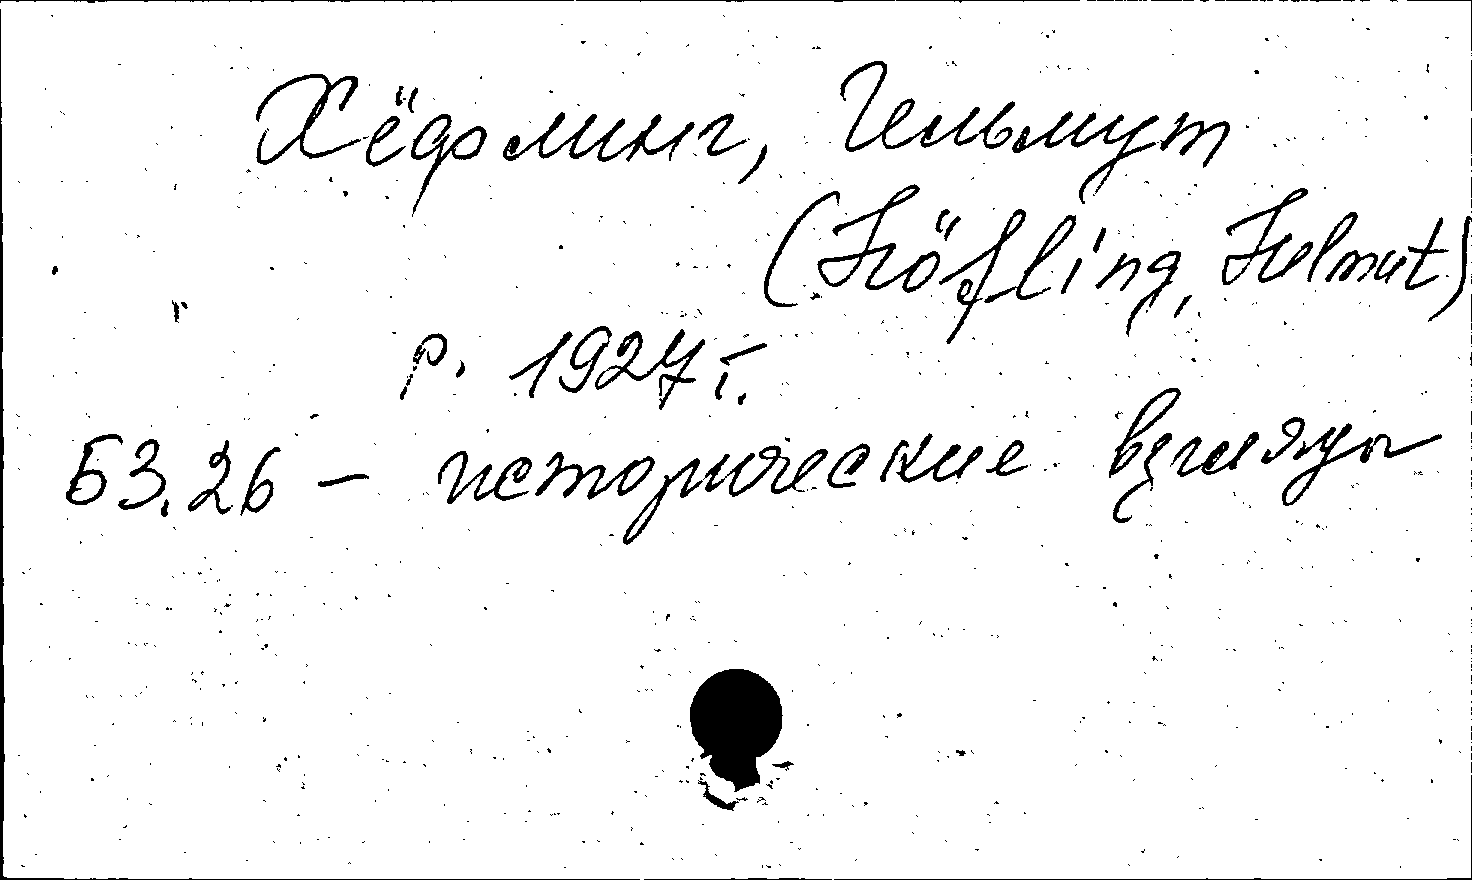 Хёфлинг, Гельмут
(Höfling, Helmut)
р. 1927 г.
Б3.26 – исторические взгляды